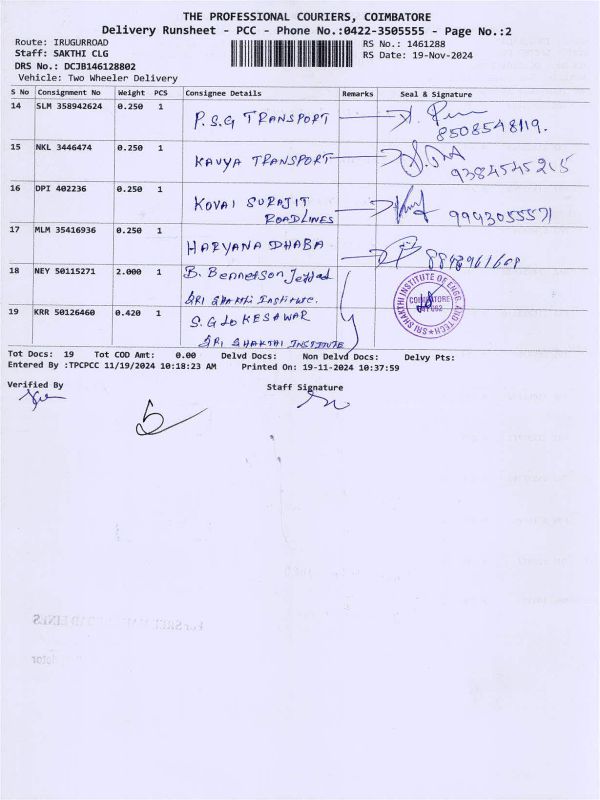 THE PROFESSIONAL COURIERS, COIMBATORE
Delivery Runsheet - PCC - Phone No.:0422-3505555 - Page No.:2
Route: IRUGURROAD
RS No.: 1461288
Staff: SAKTHI CLG
RS Date: 19-Nov-2024
DRS No.: DCJB146128802
Vehicle: Two Wheeler Delivery
S No Consignment No Weight PCS Consignee Details Remarks Seal & Signature
14 SLM 358942624 0.250 1 P.S.G TRANSPORT
8508548119.
15 NKL 3446474 0.250 1 KAVYA TRANSPORT
9384545215
16 DPI 402236 0.250 1 KOVAI SURAJIT
ROADLINES
17 MLM 35416936 0.250 1
HARYANA DHABA
18 NEY 50115271 2.000 1 B.
SRI SHAKTHI INSTITUTE.
SRI SHAKTHI INSTITUTE OF ENGG. AND TECH
COIMBATORE
19 KRR 50126460 0.420 1 S.G LOKESAWAR
SRI SHAKTHI INSTITUTE
Tot Docs: 19 Tot COD Amt: 0.00 Delvd Docs: Non Delvd Docs: Delvy Pts:
Entered By :TPCPCC 11/19/2024 10:18:23 AM Printed On: 19-11-2024 10:37:59
Verified By Staff Signature
5